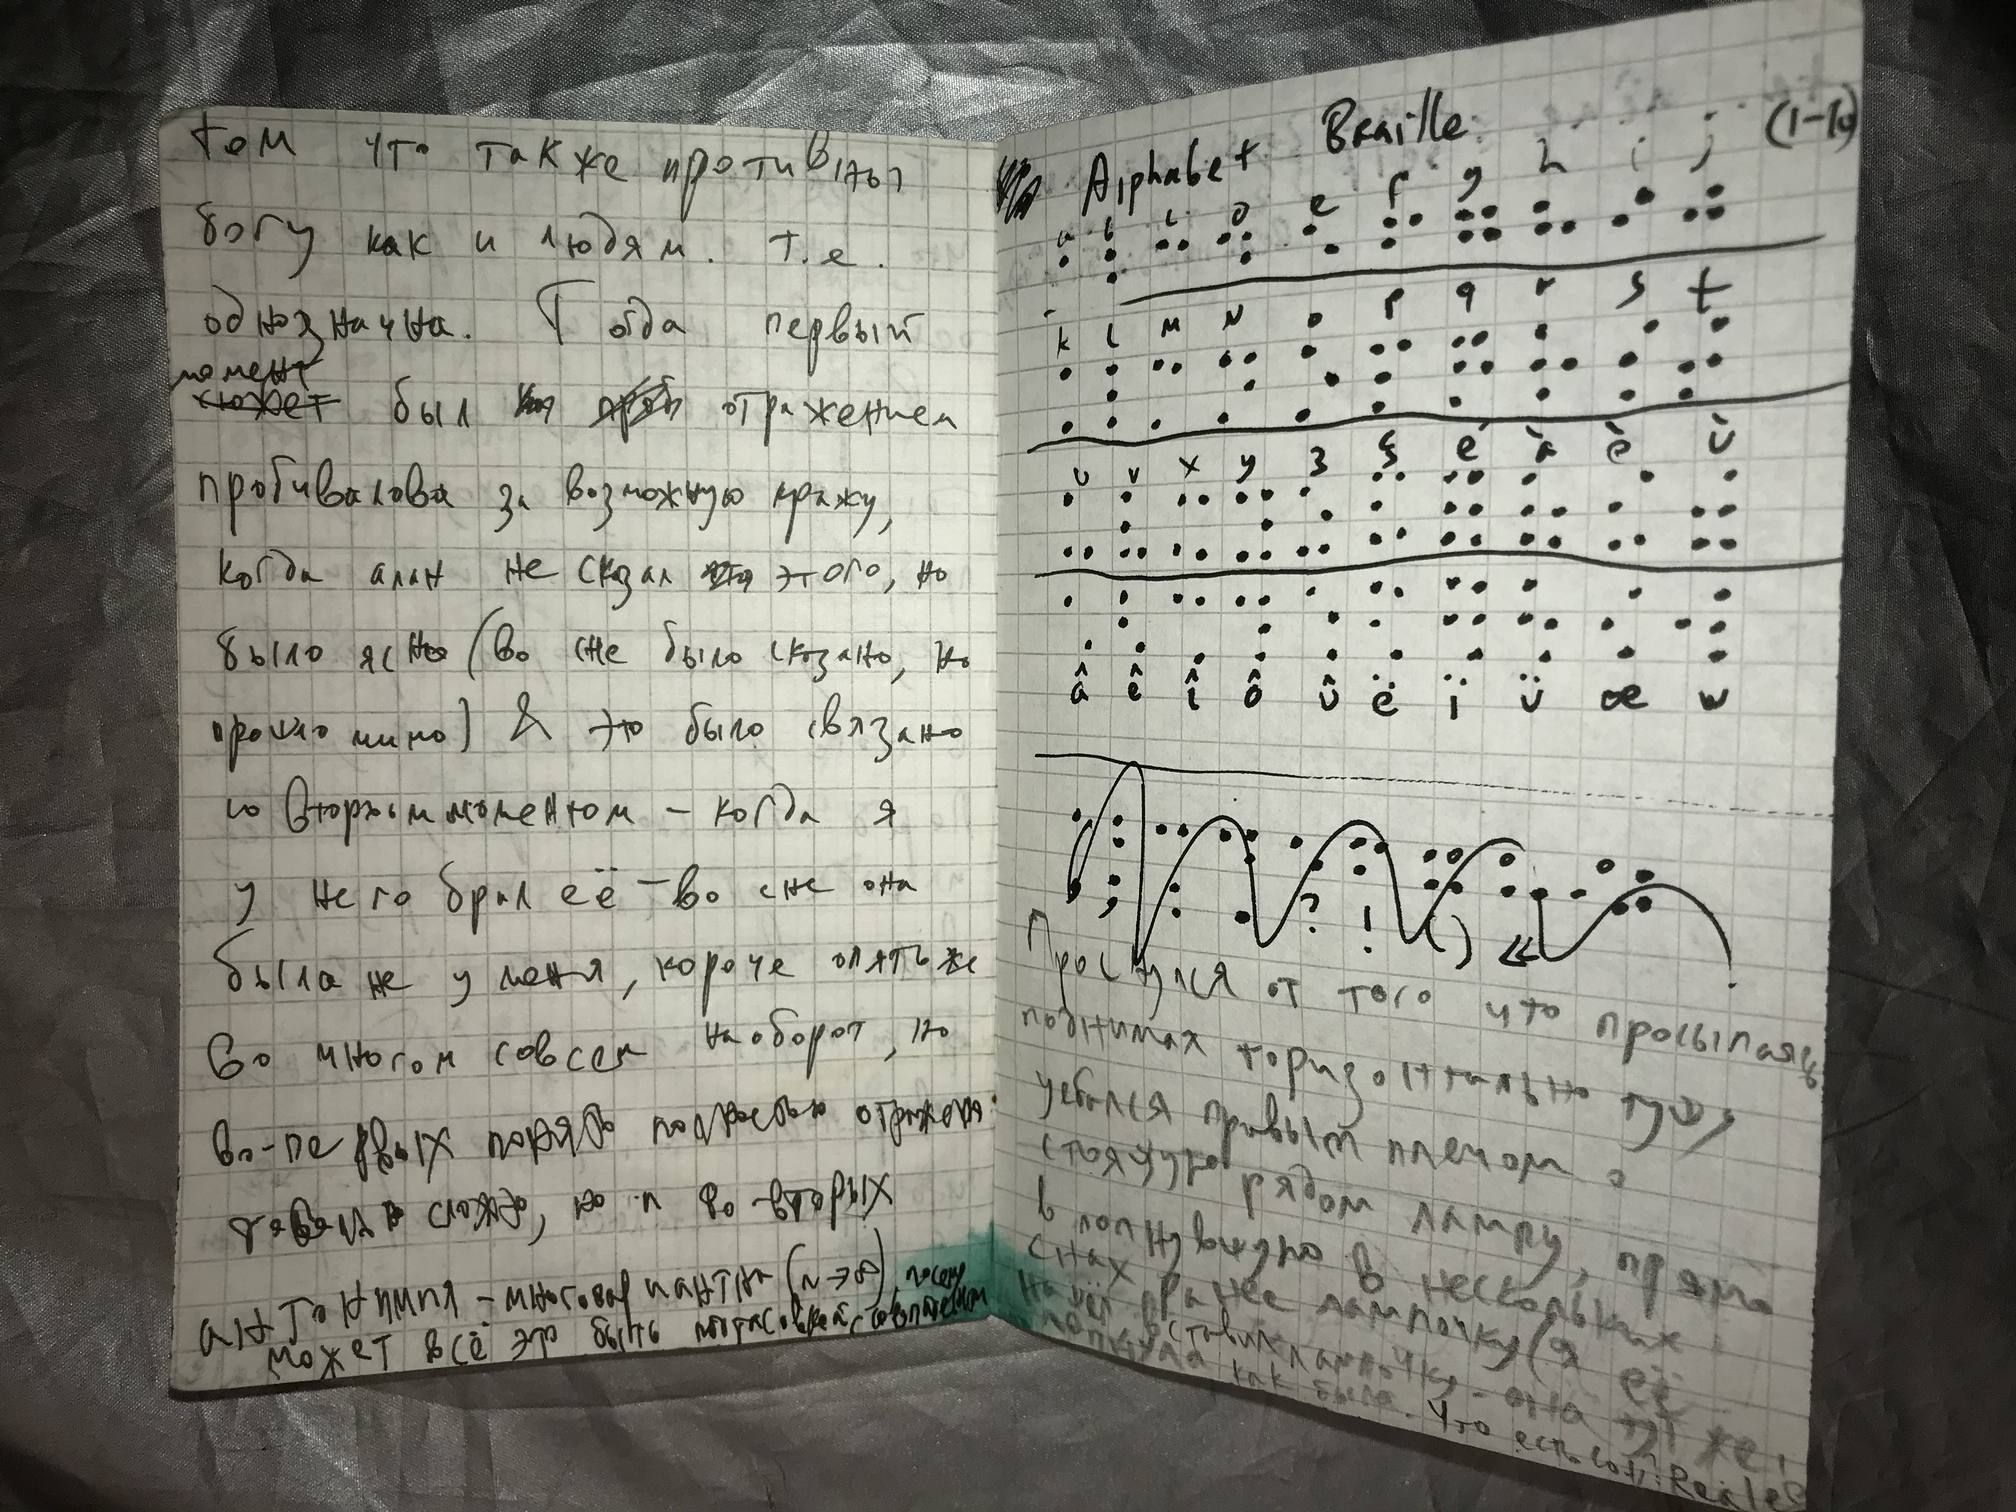 том что также противны
богу как и людям. т.е.
однозначна. Тогда первый
момент
сюжет был отражением
пробивалова за возможную кражу,
когда алан не сказал этого, но
было ясно (во сне было сказано, но
прошло мимо) & это было связано
со вторым моментом – когда я
у него брал её – во сне она
была не у меня, короче опять же
во многом совсем наоборот, но
во-первых понять полностью
сложно, но и во-вторых
антонимия – многовариантна (n → ∞) посему
может всё это быть
Alphabet Braille (1–10)
a b c d e f g h i j
k l m n o p q r s t
u v x y z ç é à è ù
â ê î ô û ë ï ü œ w
, ; ? ! () «
Проснулся от того что просыпаясь
поднимая горизонтально тушу
уебался правым плечом о
стоящую рядом лампу, прямо
в лопнувшую в нескольких
снах ранее лампочку (я её
нашёл вставил лампочку - она тут же
лопнула как была. Что есть сон? Réalité?